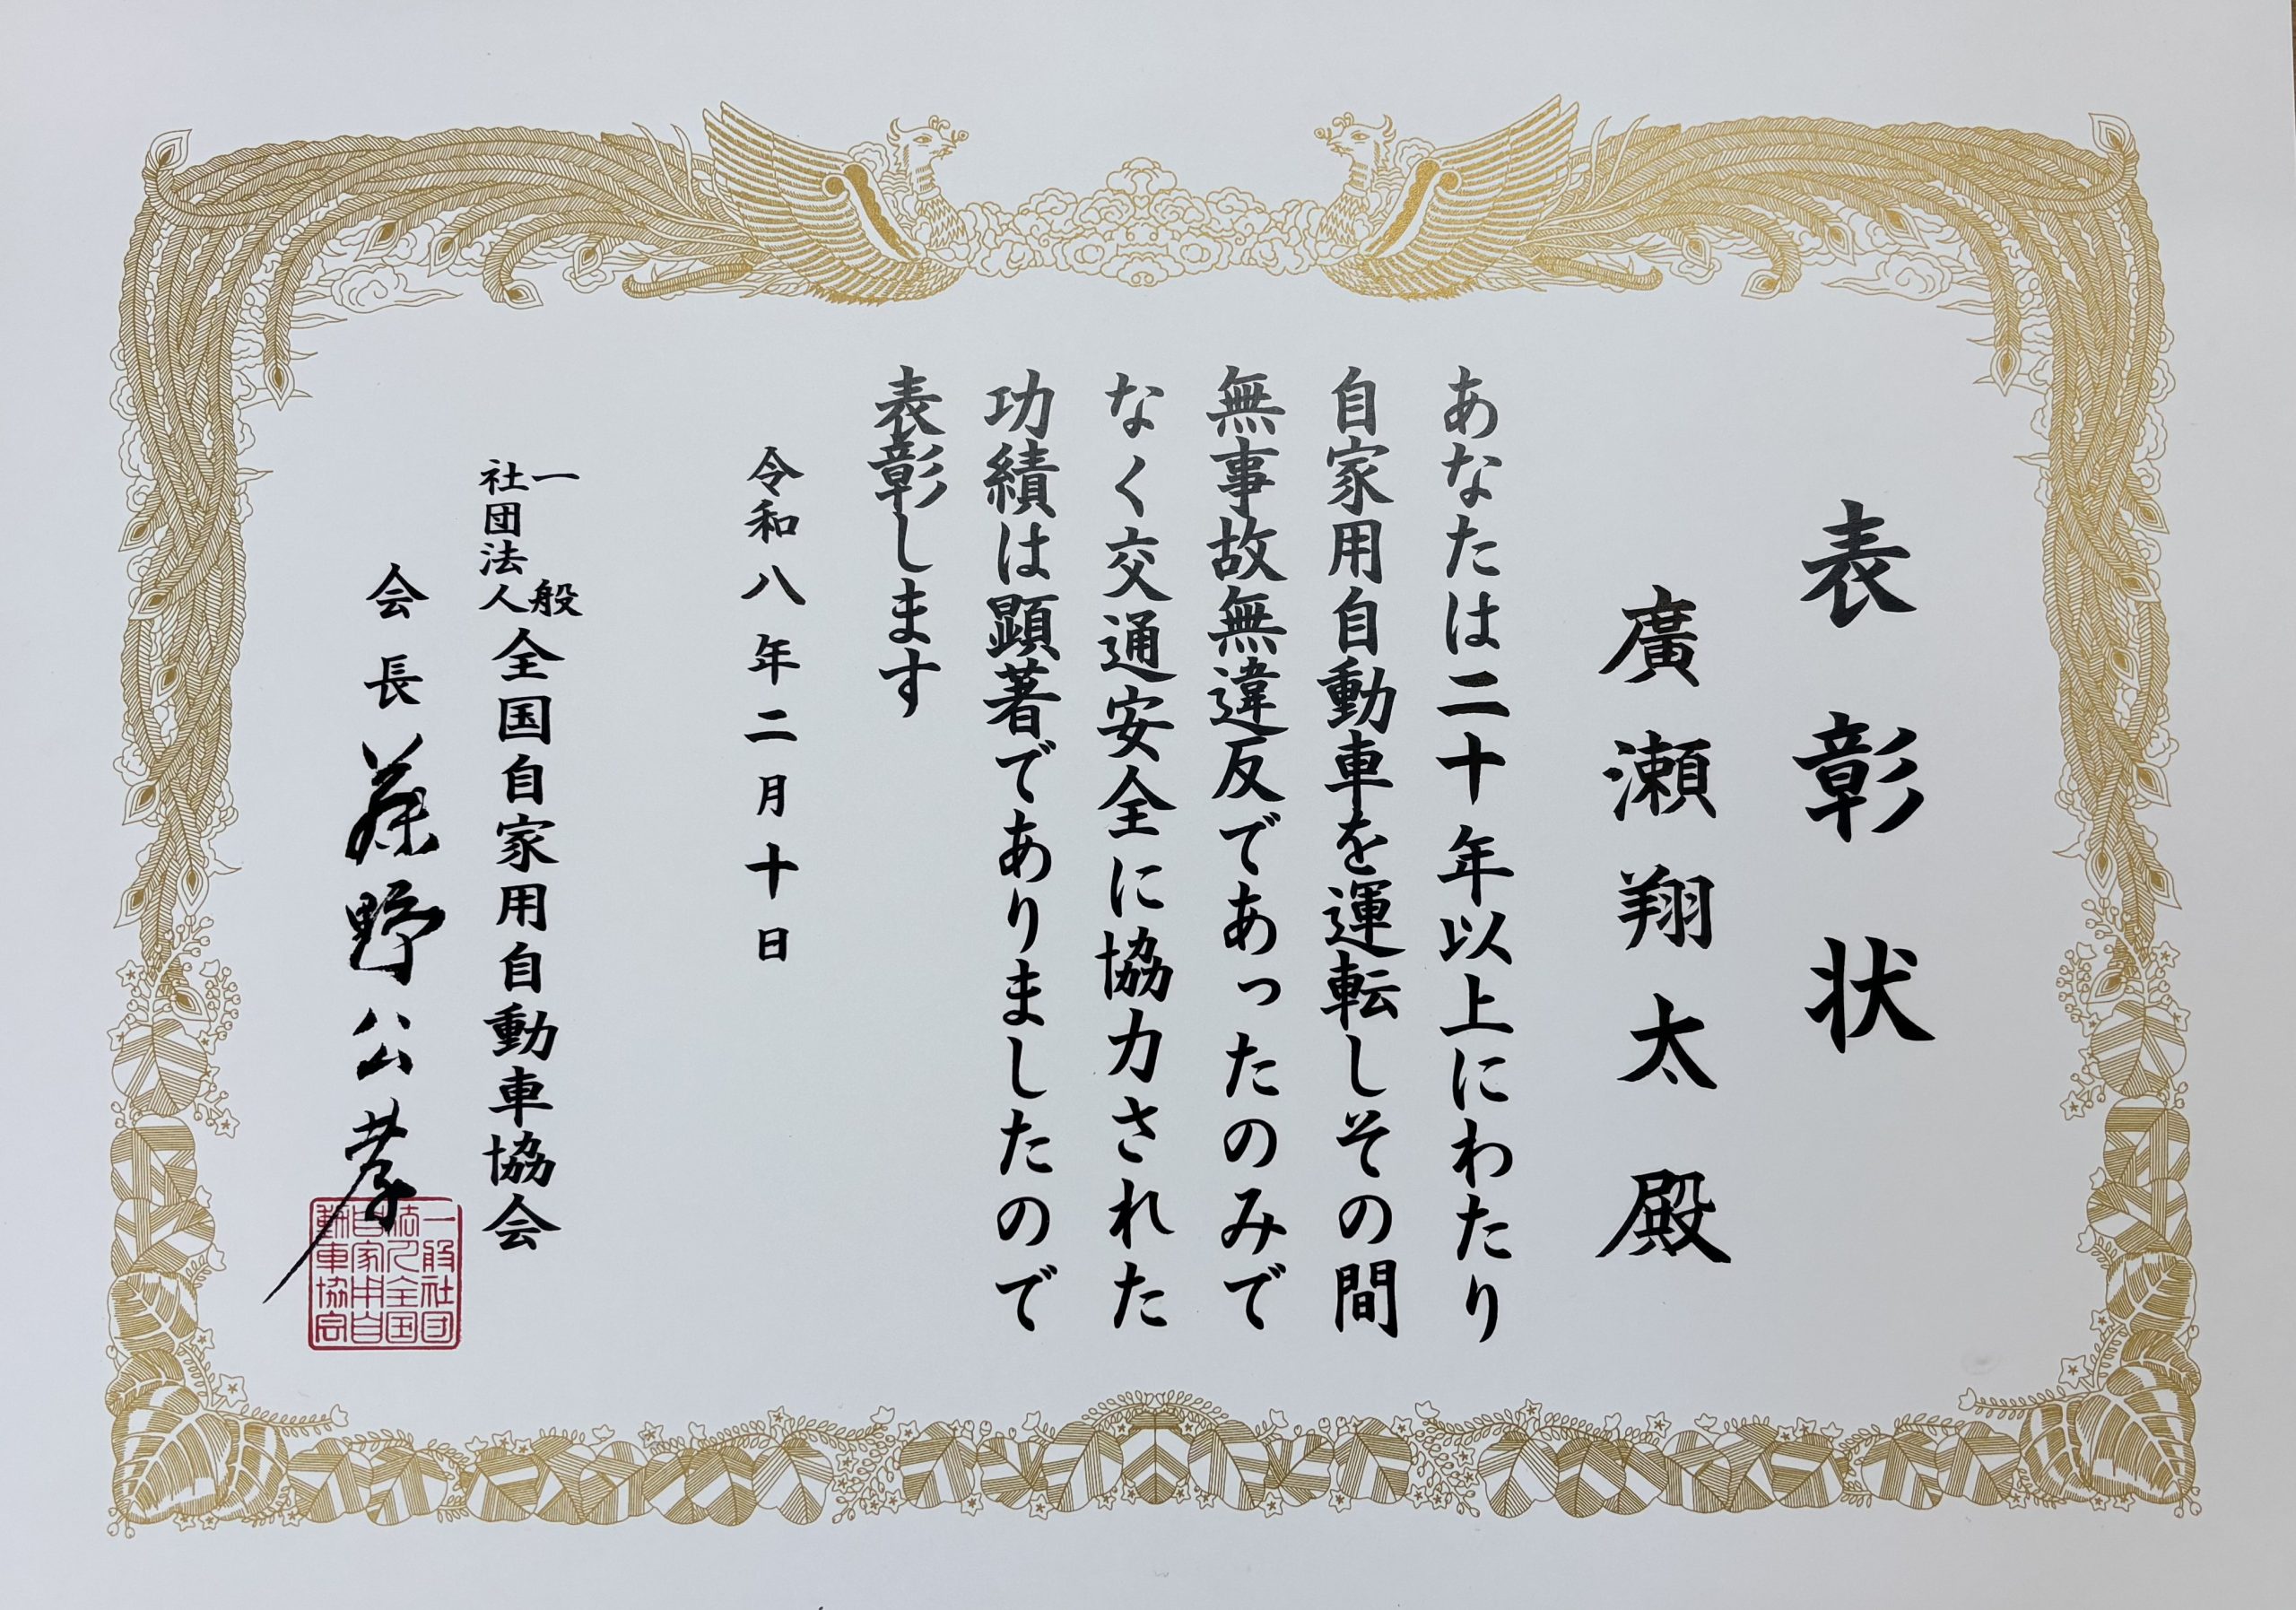 表彰状
廣瀬翔太殿
あなたは二十年以上にわたり
自家用自動車を運転しその間
無事故無違反であったのみで
なく交通安全に協力された
功績は顕著でありましたので
表彰します
令和八年二月十日
一般社団法人全国自家用自動車協会
会長 藤野公孝
一般社団
法人全国
自家用自
動車協会